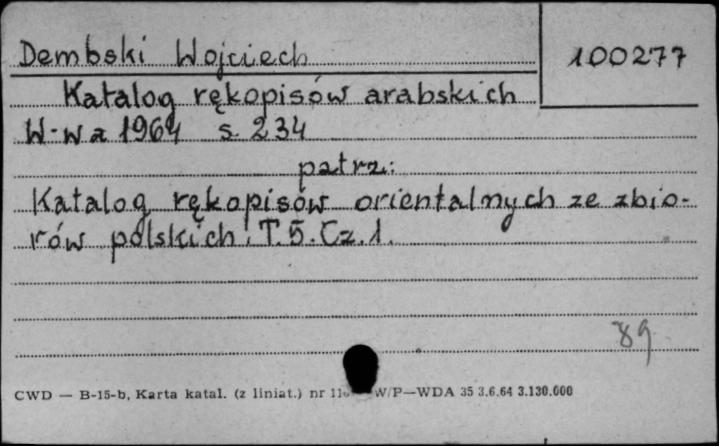 Dembski Wojciech
100277
Katalog rękopisów arabskich
W-wa 1964 s. 234
patrz:
Katalog rękopisów orientalnych ze zbio-
rów polskich. T.5. Cz.1.
89
CWD — B-15-b, Karta katal. (z liniat.) nr W/P—WDA 35 3.6.64 3.130.000